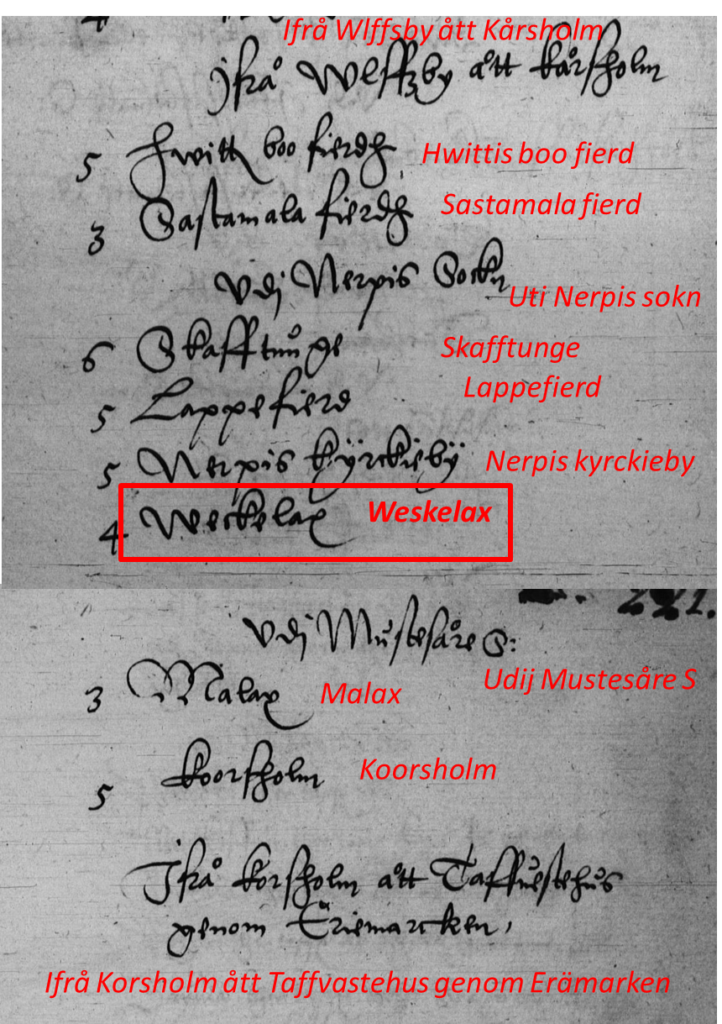 Ifrå Wlffsby ått Kårsholm
Ifrå Wlffzby ått kårsholm
5 Hwittis boo fierdh Hwittis boo fierd
3 Sastamala fierdh Sastamala fierd
Vdj Nerpis Sockn
Uti Nerpis sokn
6 Skafftunge Skafftunge
5 Lappefierd Lappefierd
5 Nerpis kÿrckiebÿ Nerpis kyrckieby
4 Weskelax Weskelax
221.
Vdj Mustesåre S:
Udij Mustesåre S
3 Malax Malax
5 koorsholm Koorsholm
Ifrå korsholm ått Taffuestehus
genom Eriemarcken,
Ifrå Korsholm ått Taffvastehus genom Erämarken